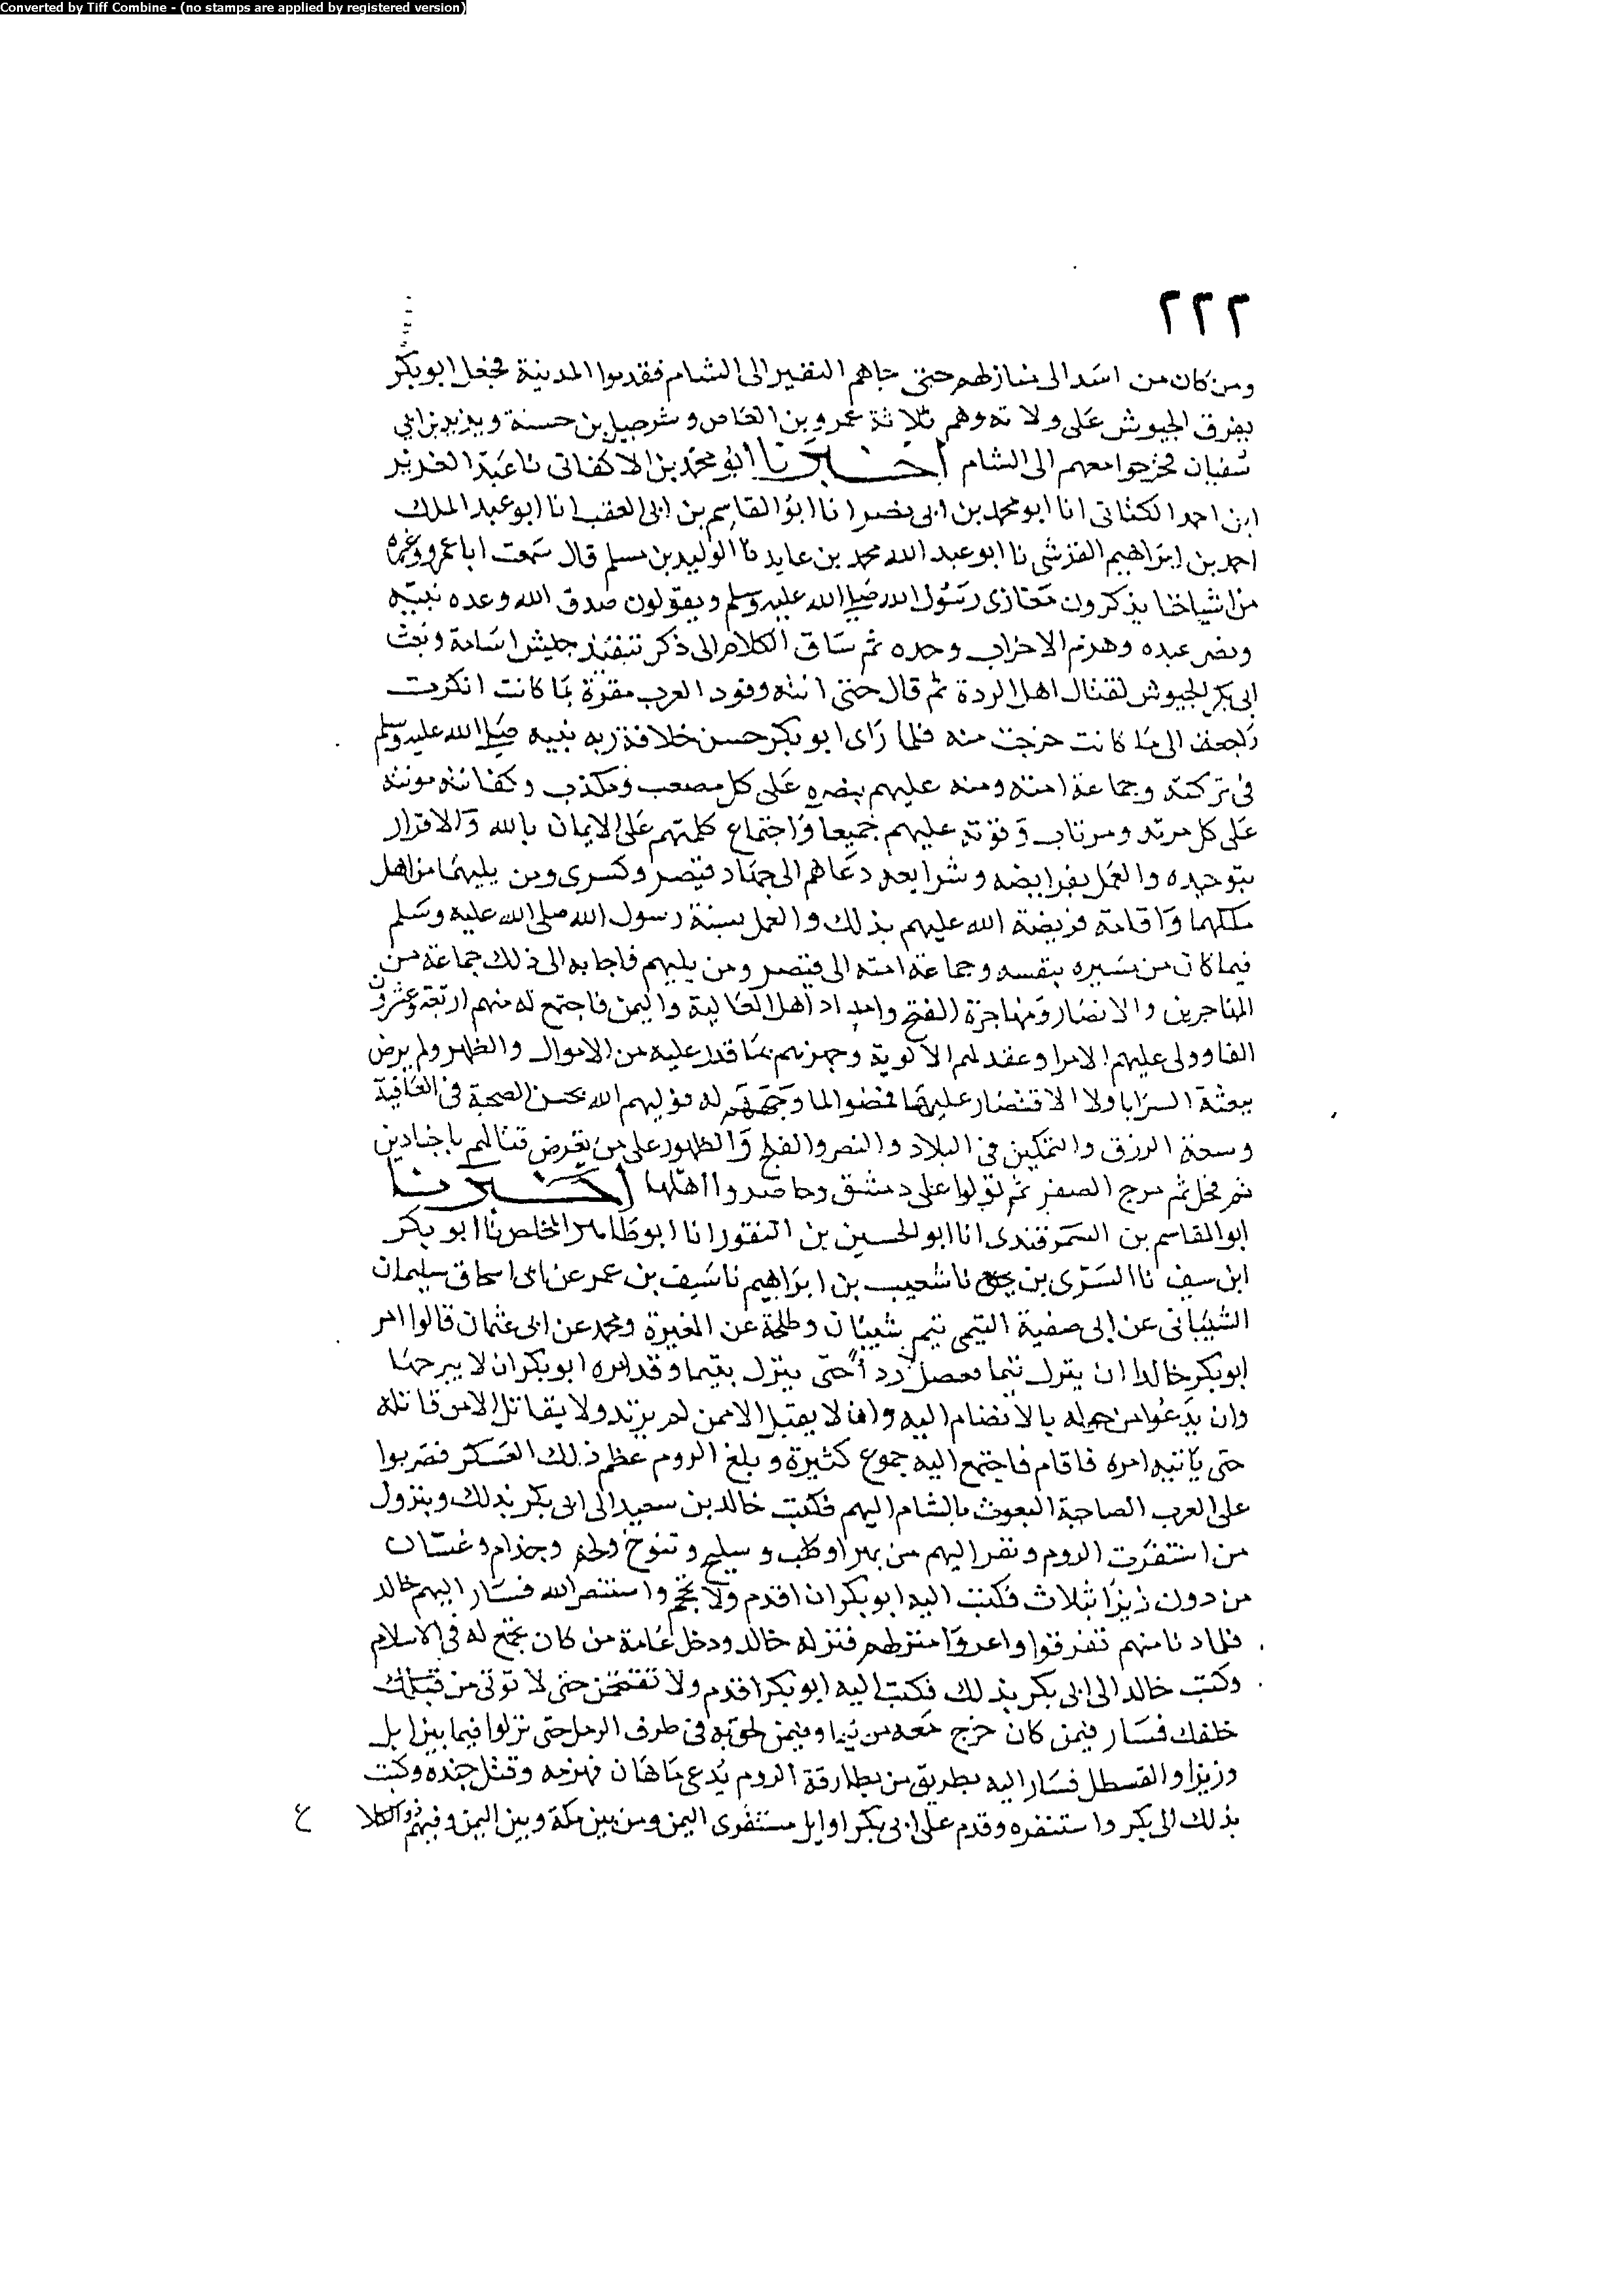 Converted by Tiff Combine - (no stamps are applied by registered version)
٢٢٢
ومن كان من اسد الى منازلهم حتى جاهم النفير الى الشام فقدموا المدينة فجعل ابو بكر
يفرق الجيوش على ولاته وهم ثلاثة عمرو بن العاص وشرحبيل بن حسنة ويزيد بن ابي
سفيان فخرجوا معهم الى الشام اخبرنا ابو محمد بن الاكفاني نا عبد العزيز
ابن احمد الكتاني انا ابو محمد بن ابي نصر انا ابو القاسم بن ابي العقب انا ابو عبد الملك
احمد بن ابراهيم القرشي نا ابو عبد الله محمد بن عايد نا الوليد بن مسلم قال سمعت ابا عمرو وغيره
من اشياخنا يذكرون مغازى رسول الله صلى الله عليه وسلم ويقولون صدق الله وعده نبيه
ونصر عبده وهزم الاحزاب وحده ثم ساق الكلام الى ذكر تنفيذ جيش اسامة وبعث
ابي بكر الجيوش لقتال اهل الردة ثم قال حتى اتته وفود العرب مقرة بما كانت انكرت
راجعة الى ما كانت خرجت منه فلما راى ابو بكر حسن خلافة ربه نبيه صلى الله عليه وسلم
فى تركته وجماعة امته ومنه عليهم بنصره على كل مصعب ومكذب وكفانته مونته
على كل مرتد ومرتاب وقوته عليهم جميعا واجتماع كلمتهم على الايمان بالله والاقرار
بتوحيده والعمل بفرايضه وشرايعه دعاهم الى جهاد قيصر وكسرى ومن يليهما من اهل
ملكهما واقامة فريضة الله عليهم بذلك والعمل بسنة رسول الله صلى الله عليه وسلم
فيما كان من مسيره بنفسه وجماعة امته الى قيصر ومن يليهم فاجابه الى ذلك جماعة من
المهاجرين والانصار ومهاجرة الفتح وامداد اهل العالية واليمن فاجتمع له منهم اربعة وعشرون
الفا وولى عليهم الامرا وعقد لهم الالوية وجهزهم بما قدر عليه من الاموال والظهر ولم يرض
ببعثة السرايا ولا الاقتصار عليها فمضوا لما وجههم له فوليهم الله بحسن الصحبة فى العافية
وسعة الرزق والتمكين فى البلاد والنصر والفتح والظهور على من تعرض قتالهم باجنادين
ثم فحل ثم مرج الصفر ثم نزلوا على دمشق وحاصروا اهلها اخبرنا
ابو القاسم بن السمرقندى انا ابو الحسين بن النقور انا ابو طاهر المخلص نا ابو بكر
ابن سيف نا السرى بن يحيى نا شعيب بن ابراهيم نا سيف بن عمر عن ابى اسحاق سليمان
الشيباني عن ابى صفية التيمى تيم شيبان وطلحة عن المغيرة ومحمد عن ابى عثمان قالوا امر
ابو بكر خالدا ان ينزل تيما ففصل ردا حتى ينزل بتيما وقد امره ابو بكر ان لا يبرحها
وان يدعوا من حوله بالانضمام اليه وان لا يقبل الا ممن لم يرتد ولا يقاتل الا من قاتله
حتى ياتيه امره فاقام فاجتمع اليه جموع كثيرة وبلغ الروم عظم ذلك العسكر فضربوا
على العرب الضاحية البعوث بالشام اليهم فكتب خالد بن سعيد الى ابى بكر بذلك وبنزول
من استنفرت الروم ونفر اليهم من بهرا وكلب وسليح وتنوخ ولخم وجذام وغسان
من دون زيزا بثلاث فكتب اليه ابو بكر ان اقدم ولا تحجم واستنصر الله فسار اليهم خالد
فلما دنا منهم تفرقوا واعروا منزلهم فنزله خالد ودخل عامة من كان تجمع له فى الاسلام
وكتب خالد الى ابى بكر بذلك فكتب اليه ابو بكر اقدم ولا تقتحمن حتى لا توتى من قبلك
خلفك فسار فيمن كان خرج معه من تيما وفيمن لحق به فى طرف الرمل حتى نزلوا فيما بين ابل
وزيزا والقسطل فسار اليه بطريق من بطارقة الروم يدعى ماهان فهزمه وقتل جنده وكتب
بذلك الى بكر واستنفره وقدم على ابى بكر اوايل مستنفرى اليمن ومن بين مكة وبين اليمن وفيهم ذو الكلا
ع